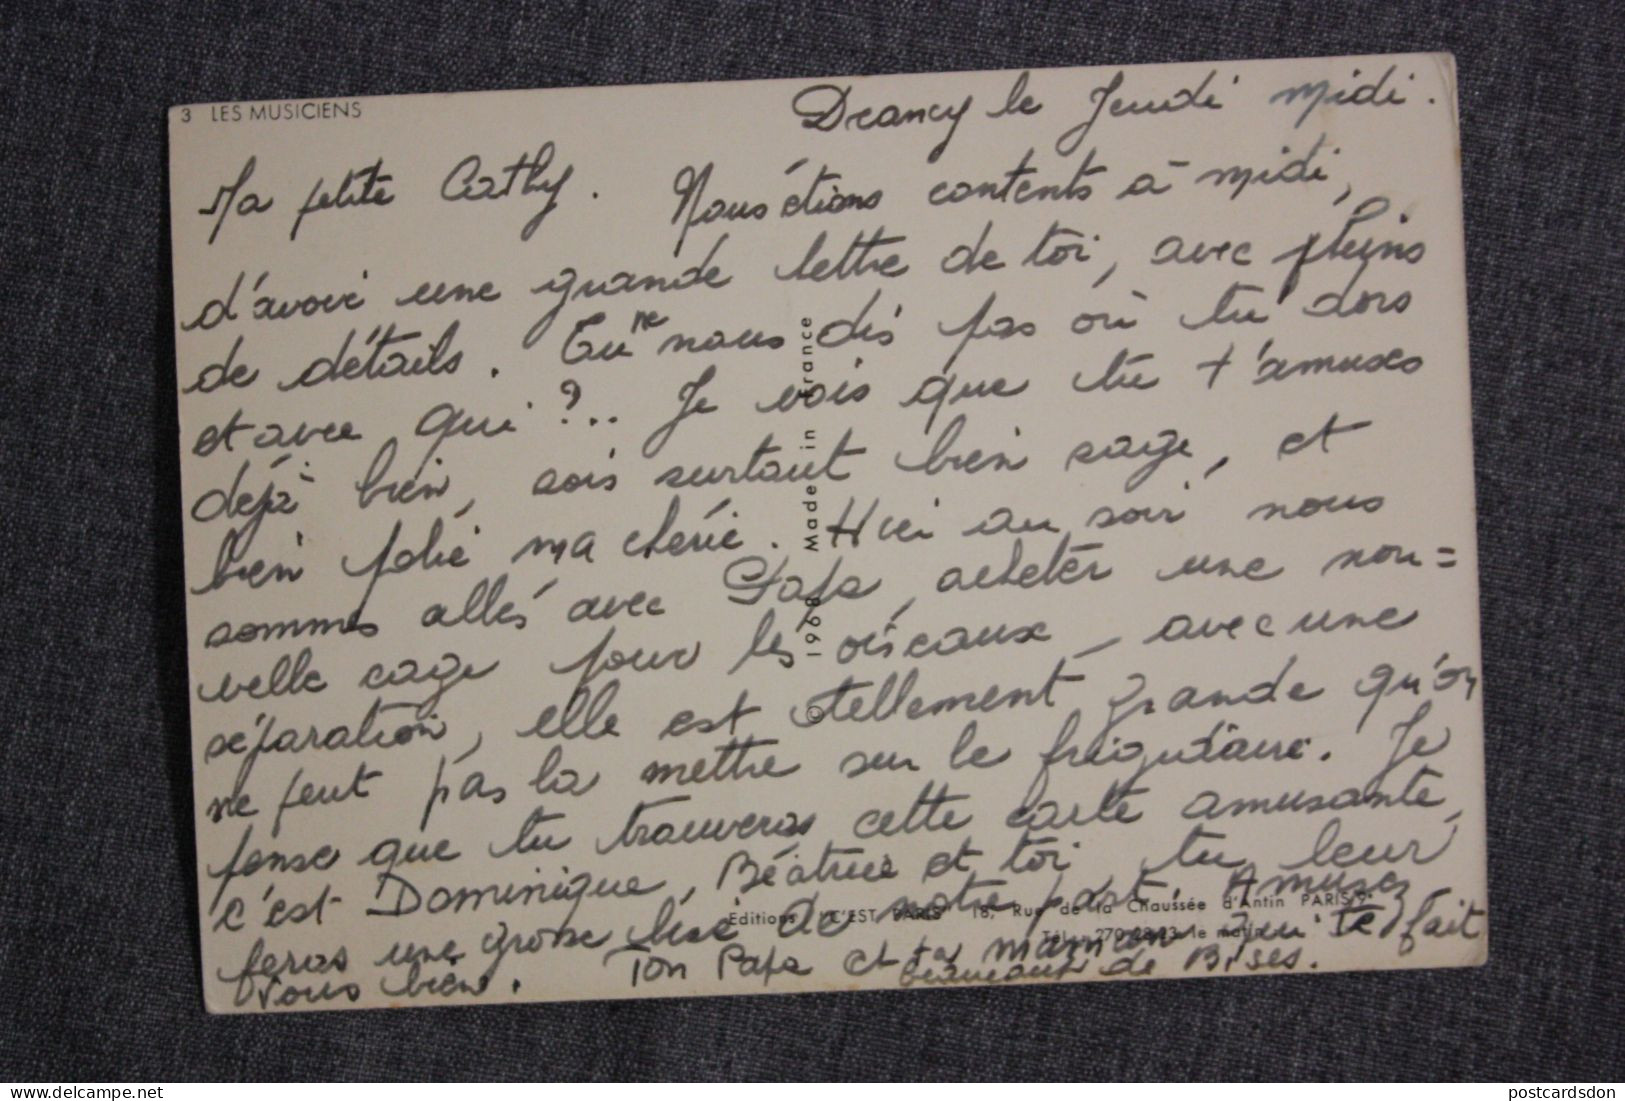 3 LES MUSICIENS
Drancy le Jeudi midi.
Ma petite Cathy. Nous étions contents à midi,
d'avoir une grande lettre de toi, avec pleins
de détails. Tu ne nous dis pas où tu dors
et avec qui ?.. Je vois que tu t'amuses
déjà bien, sois surtout bien sage, et
bien polie ma chérie. Hier au soir nous
sommes allés avec Papa, acheter une nou=
velle cage pour les oiseaux, avec une
séparation, elle est tellement grande qu'on
ne peut pas la mettre sur le frigidaire. Je
pense que tu trouveras cette carte amusante,
c'est Dominique, Béatrice et toi tu leur
feras une grosse bise de notre part. Amusez
vous bien. Ton Papa et ta maman qui te fait
beaucoup de Bises.
© 1968 Made in France
Editions "C'EST PARIS" 18, Rue de la Chaussée d'Antin PARIS-9e
Tél. : 270-28-23 le matin
postcardsdon